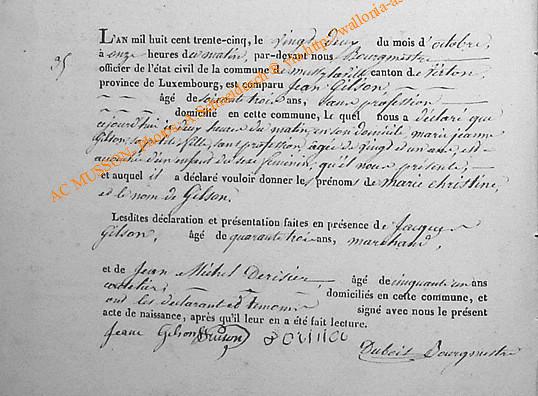 35
L'AN mil huit cent trente-cinq, le vingt deux du mois d'octobre,
à onze heures du matin, par-devant nous Bourgmestre
officier de l'état civil de la commune de mussy la ville canton de virton,
province de Luxembourg, est comparu Jean Gilson,
âgé de soixante trois ans, sans profession
domicilié en cette commune, Le quel nous a déclaré que
aujourd'hui à deux heures du matin, en son domicile, marie jeanne
Gilson, sa fille, sans profession, âgée de vingt d'un ans, est
accouchée d'un enfant du sexe féminin, qu'il nous présente,
et auquel il a déclaré vouloir donner les prénoms de marie christine,
et le nom de Gilson.
Lesdites déclaration et présentation faites en présence de Jacques
Gilson, âgé de quarante trois ans, marchand,
et de Jean Michel Derisier âgé de cinquante un ans
domiciliés en cette commune, et
ont les déclarant et témoins signé avec nous le présent
acte de naissance, après qu'il leur en a été fait lecture.
Jean Gilson
Dubois Bourgmestre
AC MUSSON, Photos: A. Schoellosch © via http://wallonia-as